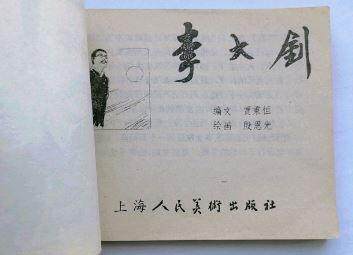 李大剑
编文 黄秉恒
绘画 殷恩光
上海人民美術出版社